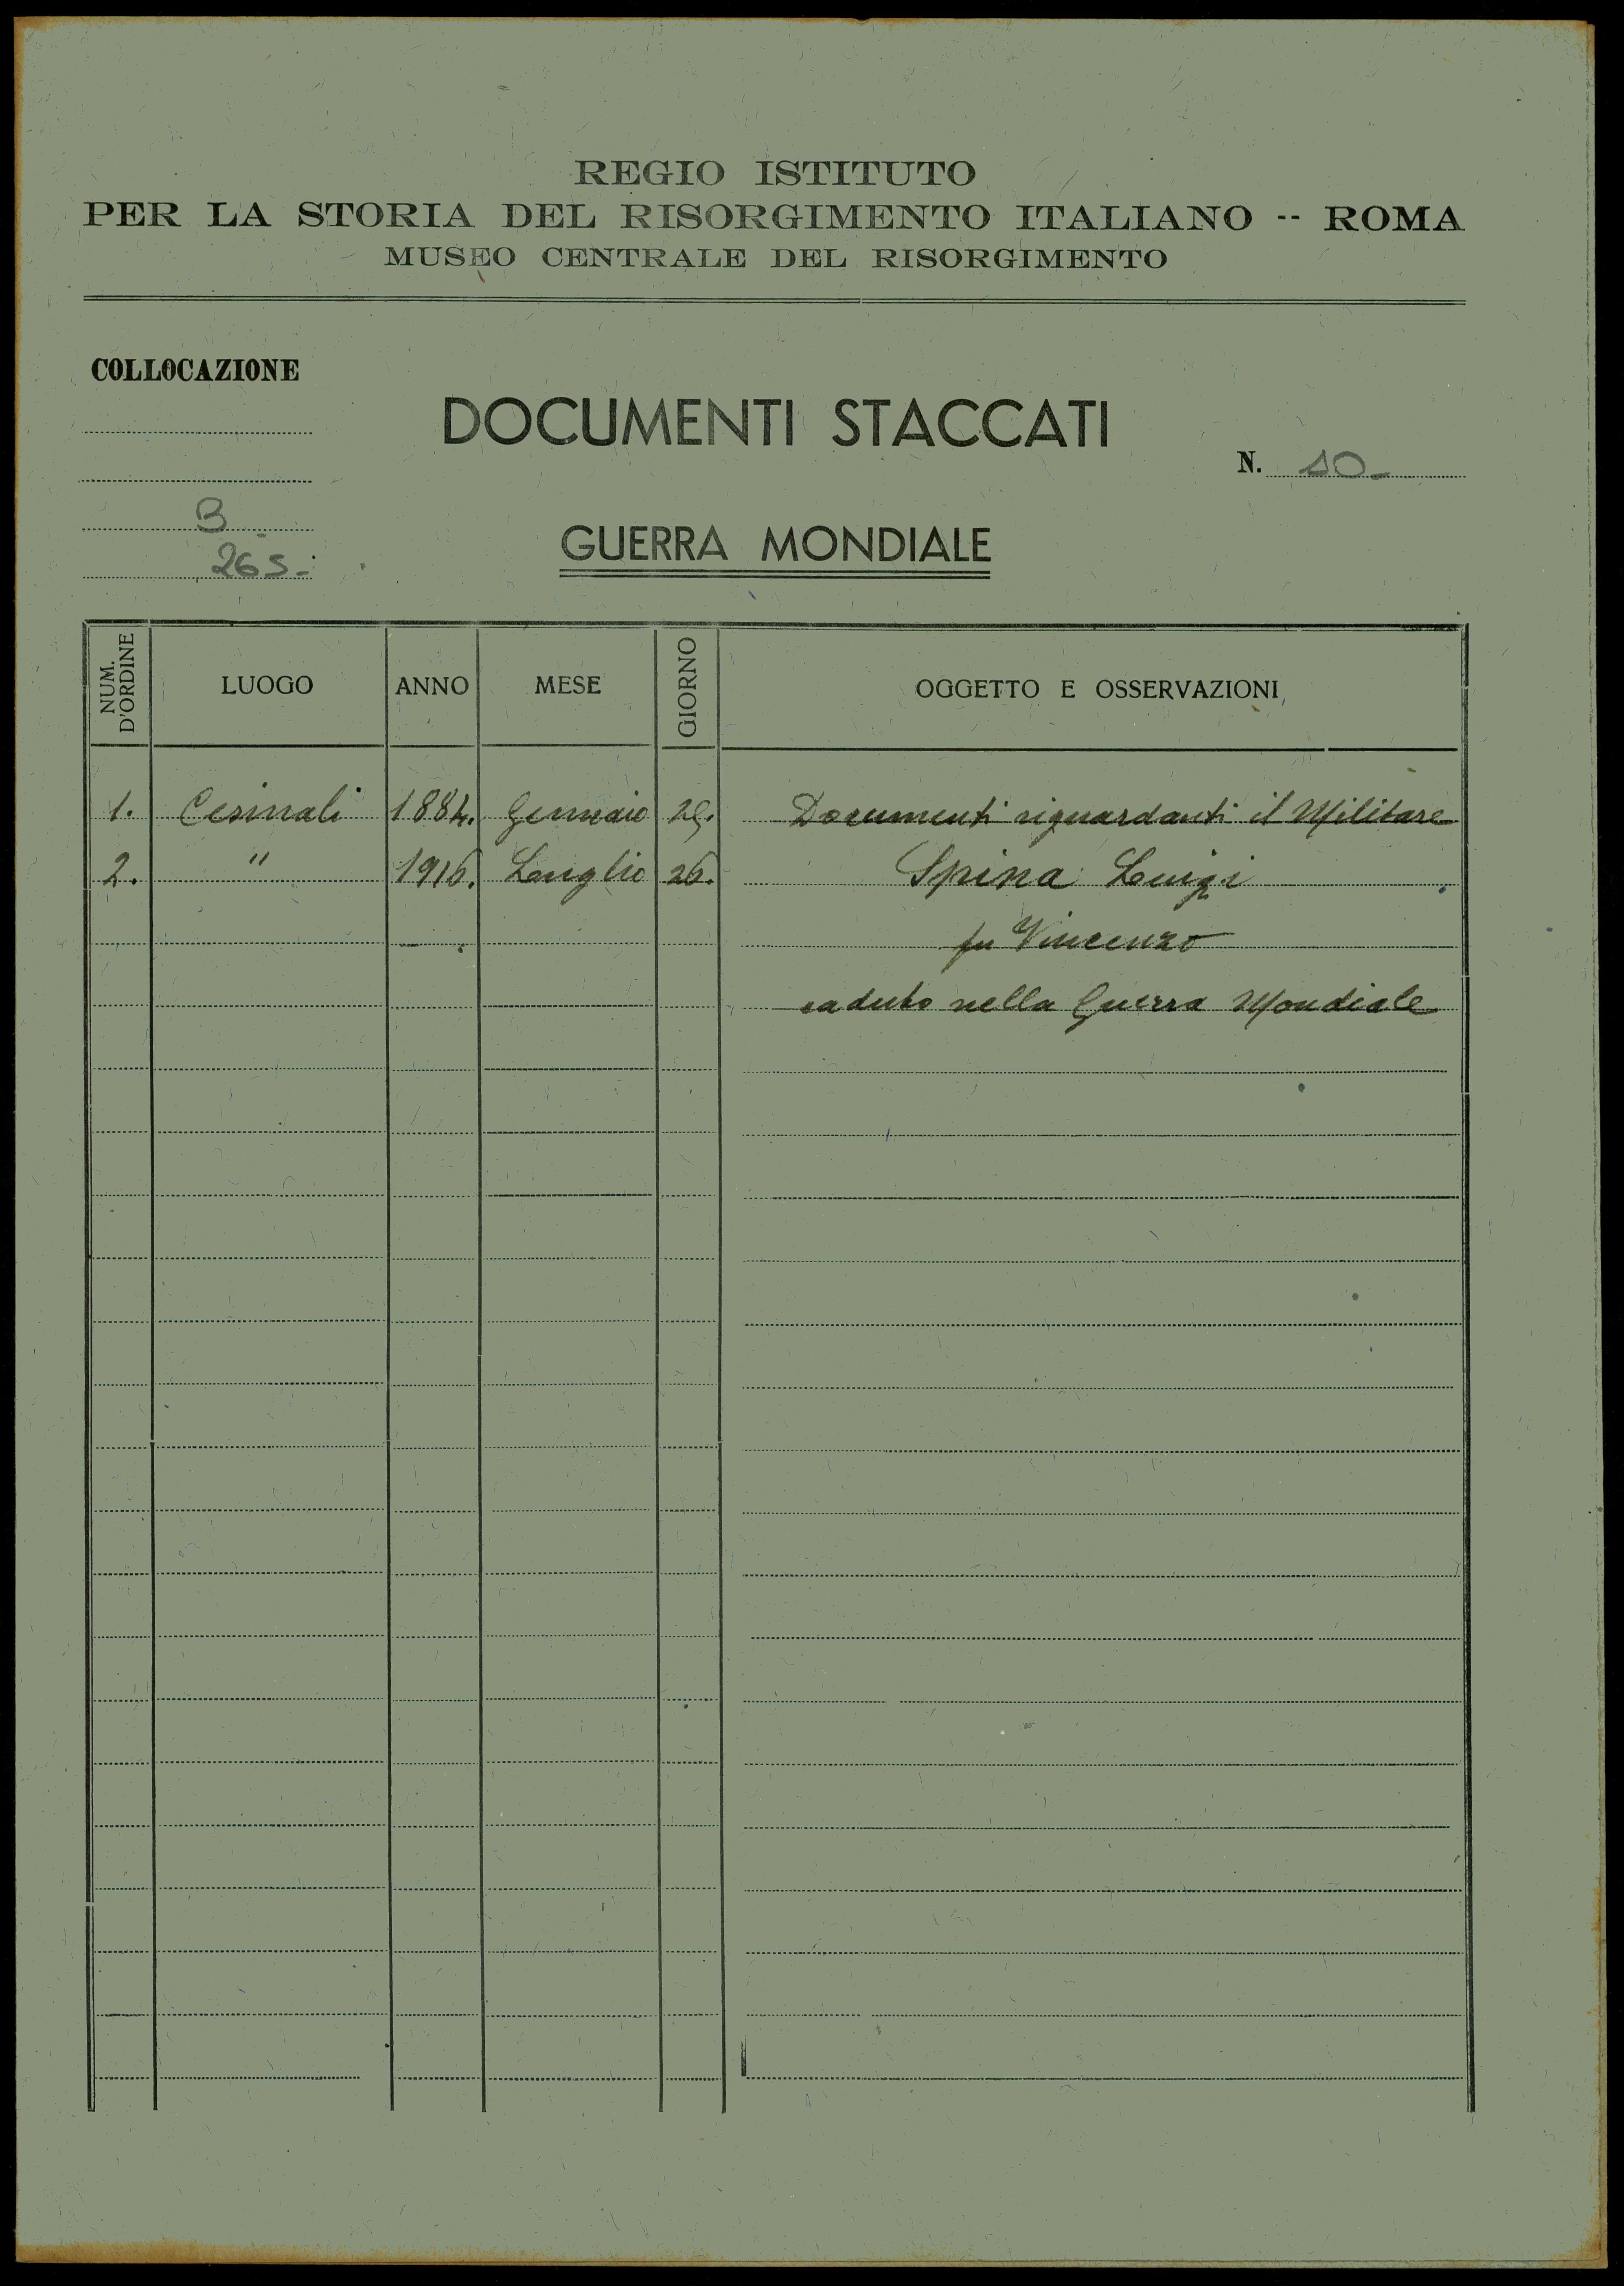 REGIO ISTITUTO
PER LA STORIA DEL RISORGIMENTO ITALIANO -- ROMA
MUSEO CENTRALE DEL RISORGIMENTO
COLLOCAZIONE
DOCUMENTI STACCATI
N. 10-
B
265-
GUERRA MONDIALE
NUM. D'ORDINE LUOGO ANNO MESE GIORNO OGGETTO E OSSERVAZIONI
1. Cesinali 1884. Gennaio 29. Documenti riguardanti il Militare
2. " 1916. Luglio 26. Spina Luigi
fu Vincenzo
caduto nella Guerra Mondiale